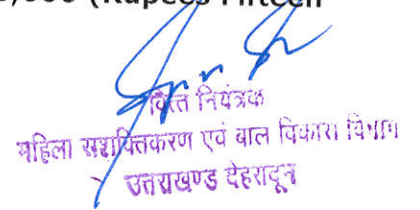 ,000 (Rupees Fifteen
वित्त नियंत्रक
महिला सशक्तिकरण एवं बाल विकास विभाग
उत्तराखण्ड देहरादून